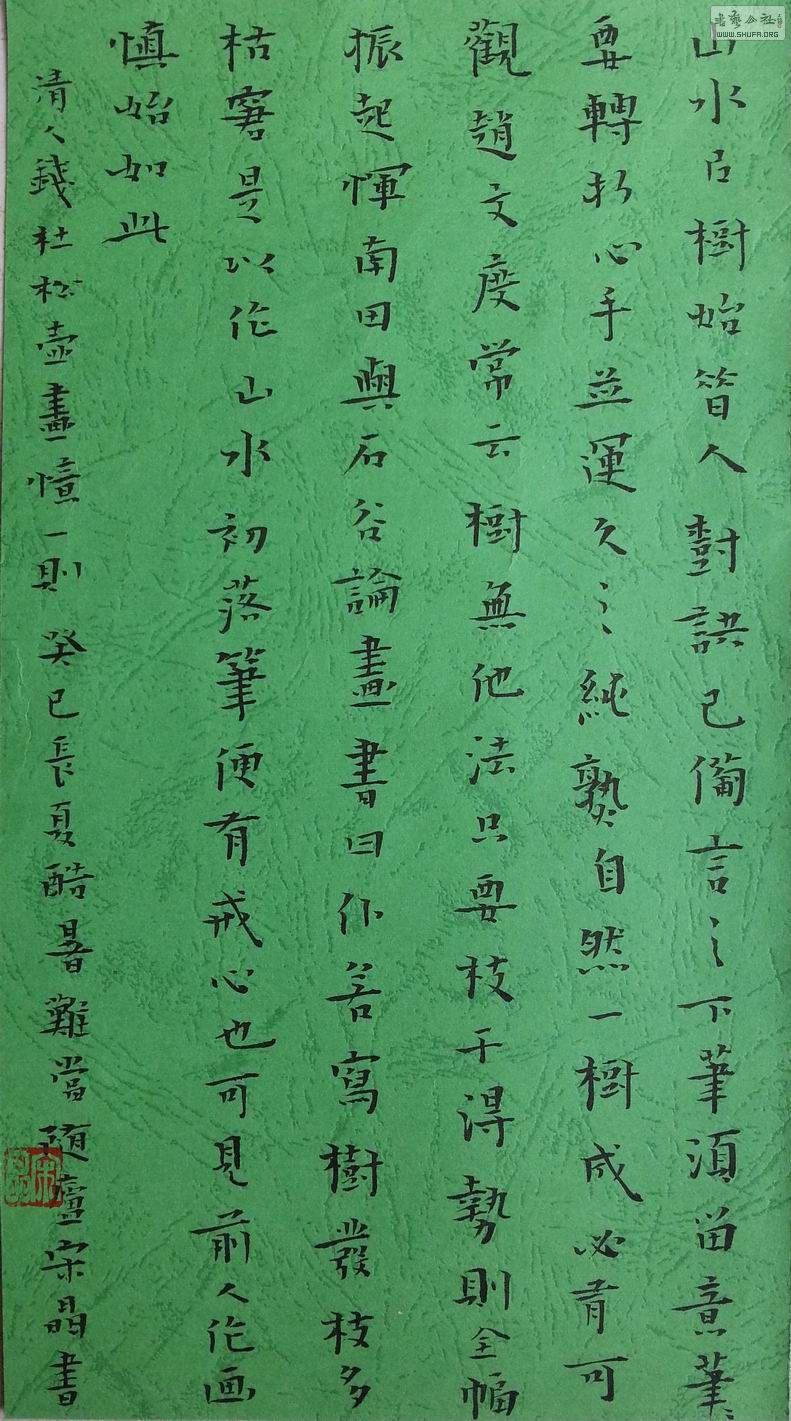 山水以樹始昔人對訣已備言之下筆須留意筆〻
要轉折心手並運久之純熟自然一樹成必有可
觀趙文度常云樹無他法只要枝干得勢則全幅
振起惲南田與石谷論畫書曰仆善寫樹發枝多
枯窘是以作山水初落筆便有戒心也可見前人作画
慎始如此
清人錢杜松壺畫憶一則 癸巳長夏酷暑難當隨廬宋晶書
書藝公社
WWW.SHUFA.ORG